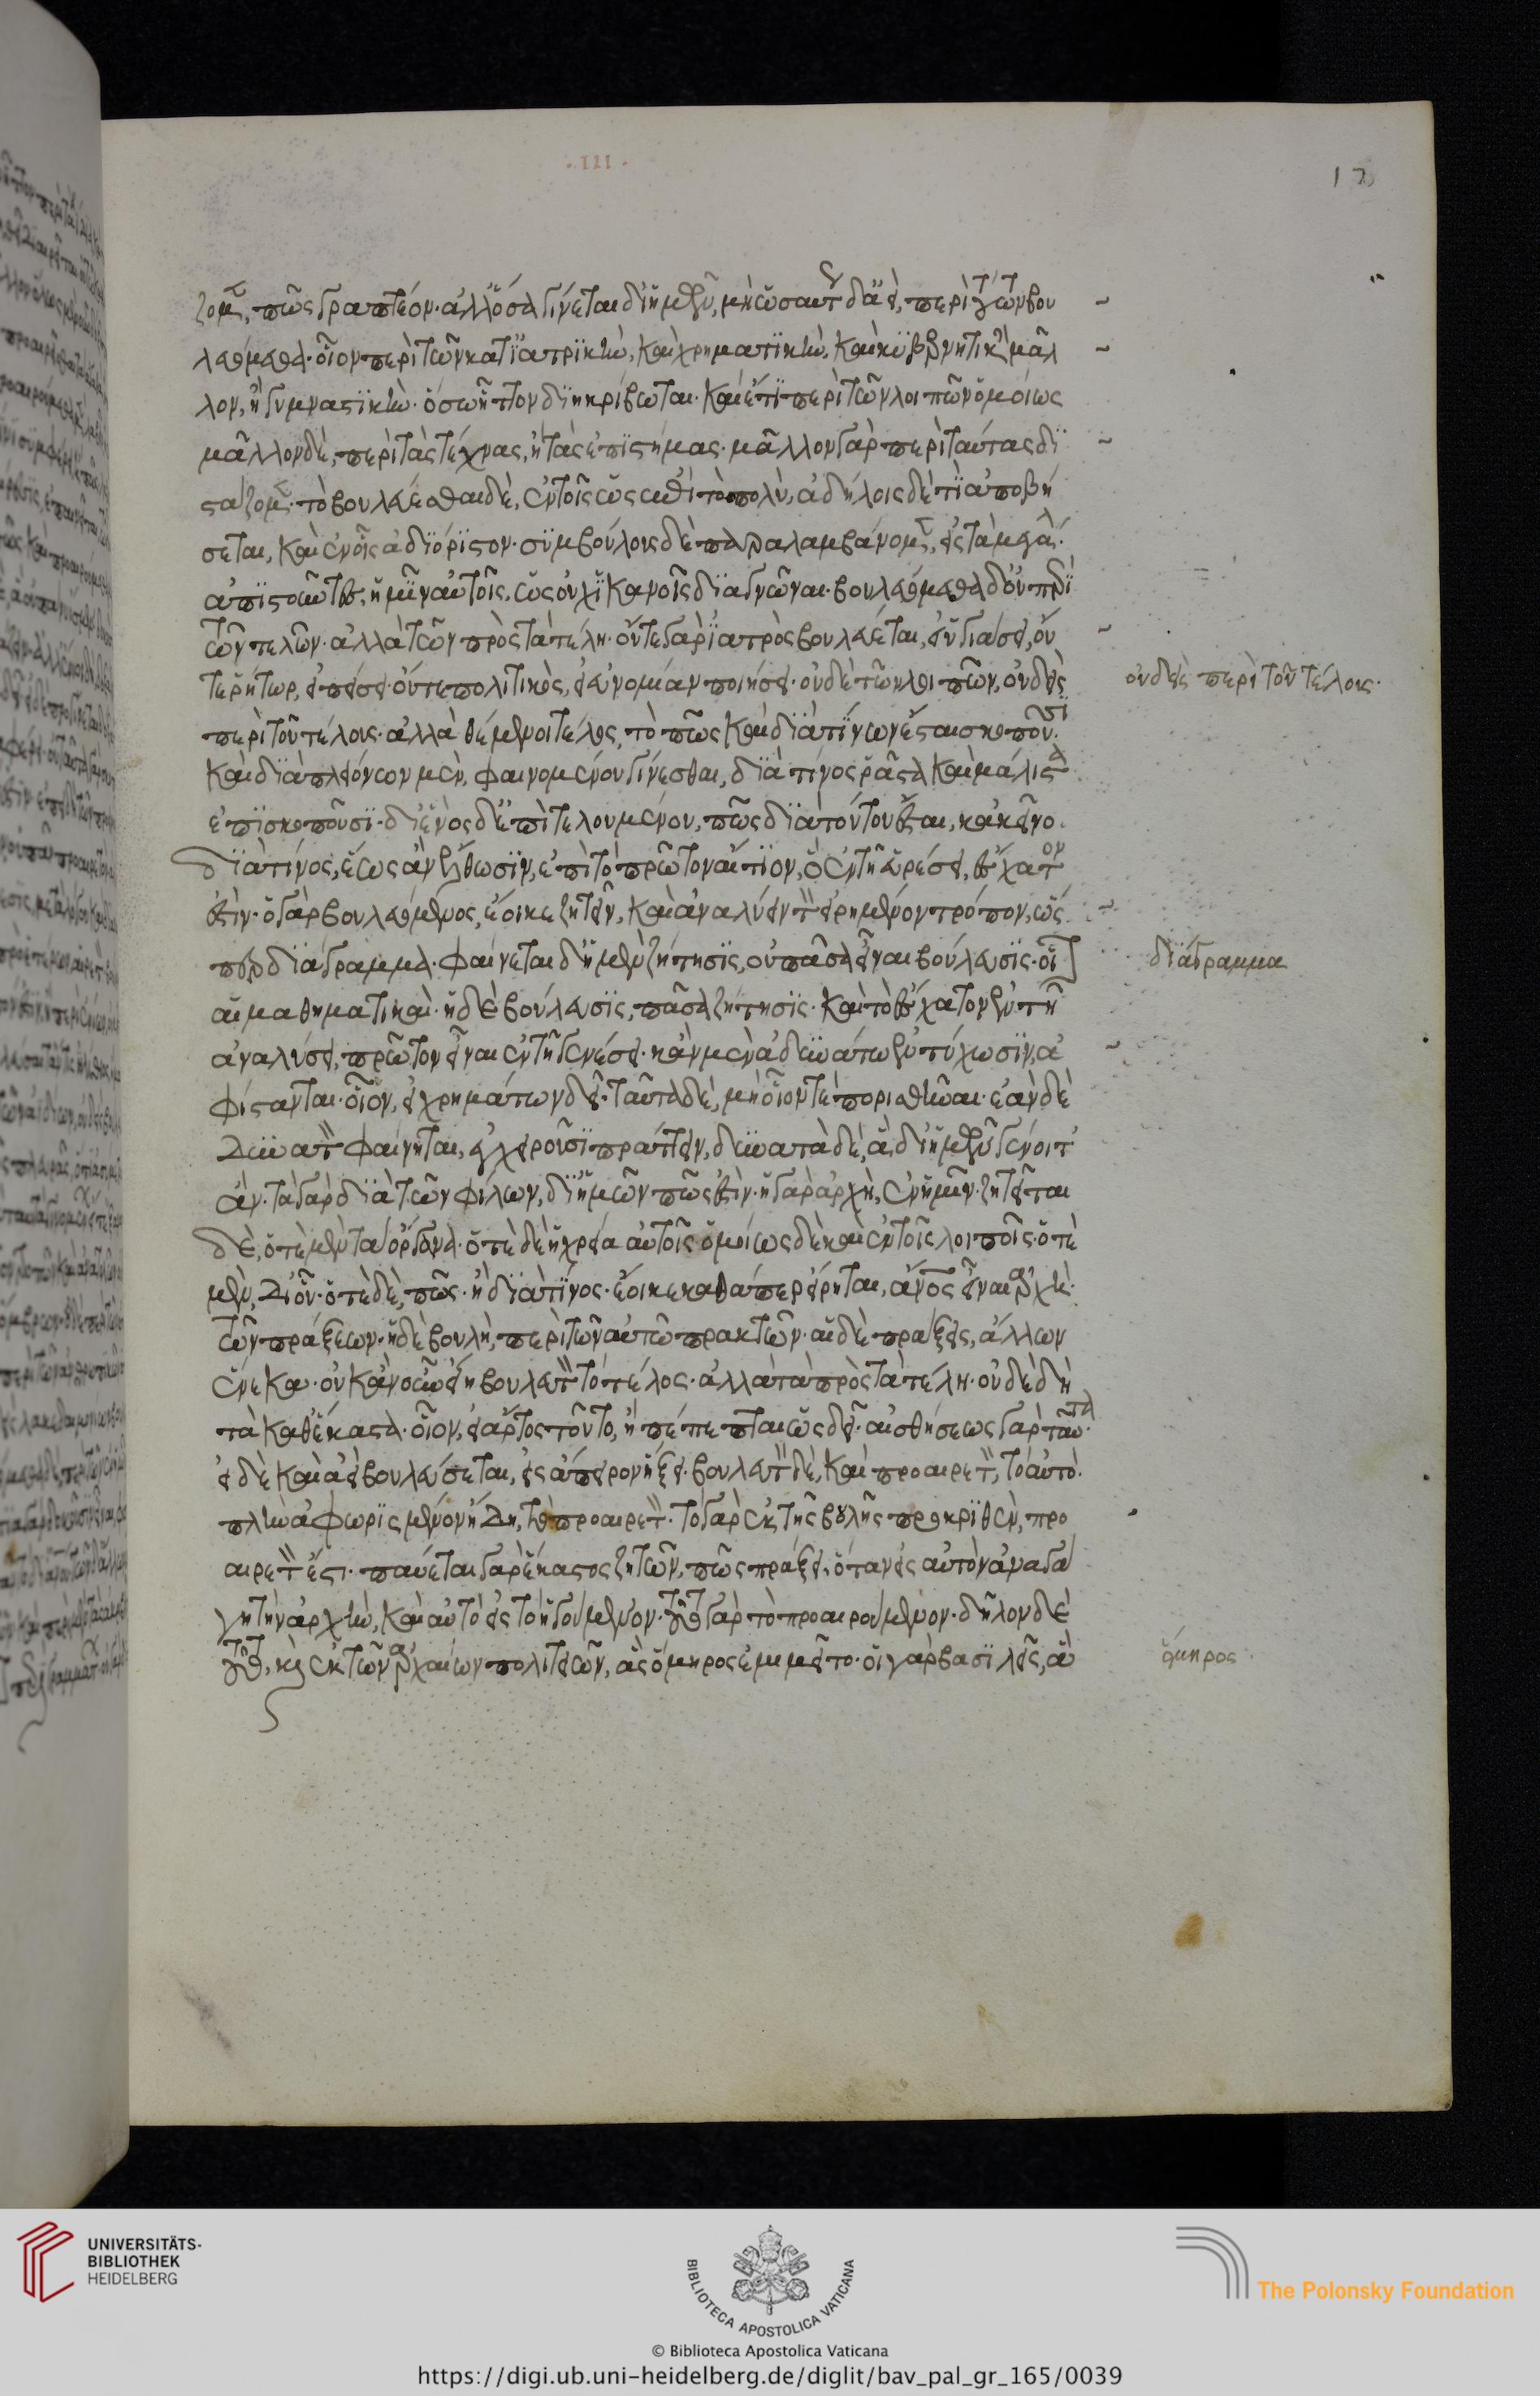 ζομεν, πῶς γραπτέον· ἀλλ' ὅσα γίνεται δι' ἡμῶν, μὴ ὡσαύτως δ' ἀεὶ, περὶ τούτων βου
λευόμεθα· οἷον περὶ τῶν κατ' ἰατρικὴν, καὶ χρηματιστικὴν, καὶ κυβερνητικὴν μᾶλ
λον, ἢ γυμναστικὴν· ὅσω ἧττον διηκρίβωται· καὶ ἔτι περὶ τῶν λοιπῶν ὁμοίως
μᾶλλον δὲ, περὶ τὰς τέχνας, ἢ τὰς ἐπιστήμας· μᾶλλον γὰρ περὶ ταύτας δι
στάζομεν· τὸ βουλεύεσθαι δὲ, ἐν τοῖς ὡς ἐπὶ τὸ πολὺ, ἀδήλοις δὲ τί ἀποβή
σεται, καὶ ἐν οἷς ἀδιόριστον· συμβούλους δὲ παραλαμβάνομεν, εἰς τὰ μεγάλα·
ἀπιστοῦντες, ἡμῖν αὐτοῖς, ὡς οὐχ ἱκανοῖς διαγνῶναι· βουλευόμεθα δ' οὐ περὶ
τῶν τελῶν· ἀλλὰ τῶν πρὸς τὰ τέλη· οὔτε γὰρ ἰατρὸς βουλεύεται, εἰ ὑγιάσει, οὔ
τε ῥήτωρ, εἰ πείσει· οὔτε πολιτικὸς, εἰ εὐνομίαν ποιήσει· οὐδὲ τῶν λοιπῶν, οὐδεὶς
οὐδεὶς περὶ τοῦ τέλους·
περὶ τοῦ τέλους· ἀλλὰ θέμενοι τέλος, τὸ πῶς καὶ διὰ τίνων ἔσται σκοποῦσι·
καὶ διὰ πλειόνων μὲν, φαινομένου γίνεσθαι, διὰ τίνος ῥᾶστα καὶ μάλιστα
ἐπισκοποῦσι· δι' ἑνὸς δ' ἐπιτελουμένου, πῶς διὰ τούτου ἔσται, κἀκεῖνο
διὰ τίνος, ἕως ἂν ἔλθωσιν, ἐπὶ τὸ πρῶτον αἴτιον, ὃ ἐν τῇ εὑρέσει, ἔσχατον
ἐστὶν· ὁ γὰρ βουλευόμενος, ἔοικε ζητεῖν, καὶ ἀναλύειν τὸν εἰρημένον τρόπον, ὥς
περ διάγραμμα· φαίνεται δ' ἡ μὲν ζήτησις, οὐ πᾶσα εἶναι βούλευσις· οἷον
διάγραμμα
αἱ μαθηματικαὶ· ἡ δὲ βούλευσις, πᾶσα ζήτησις· καὶ τὸ ἔσχατον ἐν τῇ
ἀναλύσει, πρῶτον εἶναι ἐν τῇ γενέσει· κἂν μὲν ἀδυνάτω ἐντύχωσιν, ἀ
φίστανται· οἷον, εἰ χρημάτων δεῖ· ταῦτα δὲ, μὴ οἷόν τε πορισθῆναι· ἐὰν δὲ
δυνατὸν φαίνηται, ἐγχειροῦσι πράττειν, δυνατὰ δὲ, ἃ δι' ἡμῶν γένοιτ'
ἄν· τὰ γὰρ διὰ τῶν φίλων, δι' ἡμῶν πῶς ἐστὶν· ἡ γὰρ ἀρχὴ, ἐν ἡμῖν· ζητεῖται
δὲ, ὁτὲ μὲν τὰ ὄργανα· ὁτὲ δὲ ἡ χρεία αὐτοῖς· ὁμοίως δὲ καὶ ἐν τοῖς λοιποῖς· ὁτὲ
μὲν, δι' οὗ· ὁτὲ δὲ, πῶς· ἢ διὰ τίνος· ἔοικε καθάπερ εἴρηται, ἄνθρωπος εἶναι ἀρχὴ·
τῶν πράξεων· ἡ δὲ βουλὴ, περὶ τῶν αὑτῶ πρακτῶν· αἱ δὲ πράξεις, ἄλλων
ἕνεκα· οὐκ ἂν οὖν εἴη βουλευτὸν τὸ τέλος· ἀλλὰ τὰ πρὸς τὰ τέλη· οὐδὲ δὴ
τὰ καθέκαστα· οἷον, εἰ ἄρτος τοῦτο, ἢ πέπεπται ὡς δεῖ· αἰσθήσεως γὰρ ταῦτα·
εἰ δὲ καὶ ἀεὶ βουλεύσεται, εἰς ἄπειρον ἥξει· βουλευτὸν δὲ, καὶ προαιρετὸν, τὸ αὐτὸ·
πλὴν ἀφωρισμένον ἤδη, τὸ προαιρετὸν· τὸ γὰρ ἐκ τῆς βουλῆς προκριθὲν, προ
αιρετὸν ἐστι· παύεται γὰρ ἕκαστος ζητῶν, πῶς πράξει, ὅταν εἰς αὑτὸν ἀναγά
γη τὴν ἀρχὴν, καὶ αὐτὸ εἰς τὸ ἡγούμενον· τοῦτο γὰρ τὸ προαιρούμενον· δῆλον δὲ
τοῦτο, καὶ ἐκ τῶν ἀρχαίων πολιτειῶν, ἃς ὅμηρος ἐμιμεῖτο· οἱ γὰρ βασιλεῖς, ἃ
ὅμηρος
· III ·
UNIVERSITÄTS-
BIBLIOTHEK
HEIDELBERG
BIBLIOTECA APOSTOLICA VATICANA
The Polonsky Foundation
© Biblioteca Apostolica Vaticana
https://digi.ub.uni-heidelberg.de/diglit/bav_pal_gr_165/0039